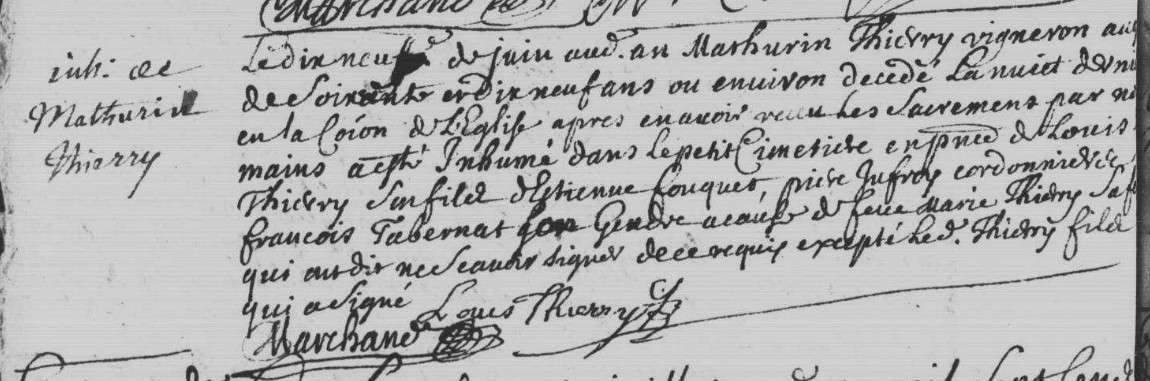 Marchand
inh: de
Mathurin
Thierry
Le dix neufe de juin aud. an Mathurin Thierry vigneron
de soixante et dix neuf ans ou environ decedé la nuict
en la Coïon de l'Eglise apres en avoir receu les sacremens par
mains a esté Inhumé dans le petit Cimetiere en pñce de Louis
Thierry son fils d'Estienne fouquet, piere Jufroy cordonnier
francois Tabernat son Gendre a cause de feue Marie Thierry sa
qui ont dit ne scavoir signer de ce requis excepté led. Thierry fils
qui a signé Louis Thierry
Marchand